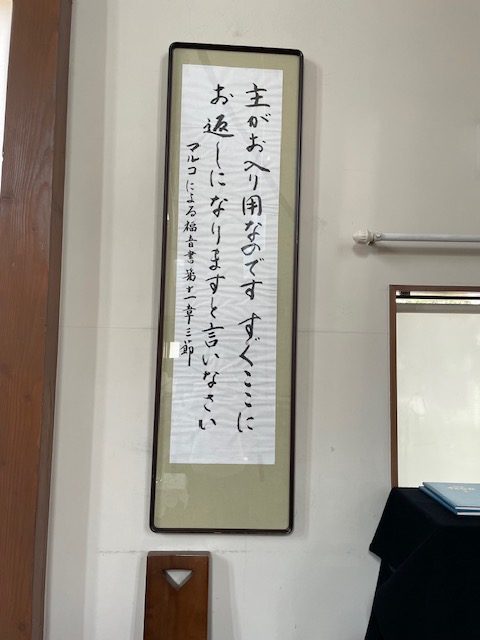 主がお入り用なのです すぐここに
お返しになりますと言いなさい
マルコによる福音書第十一章三節